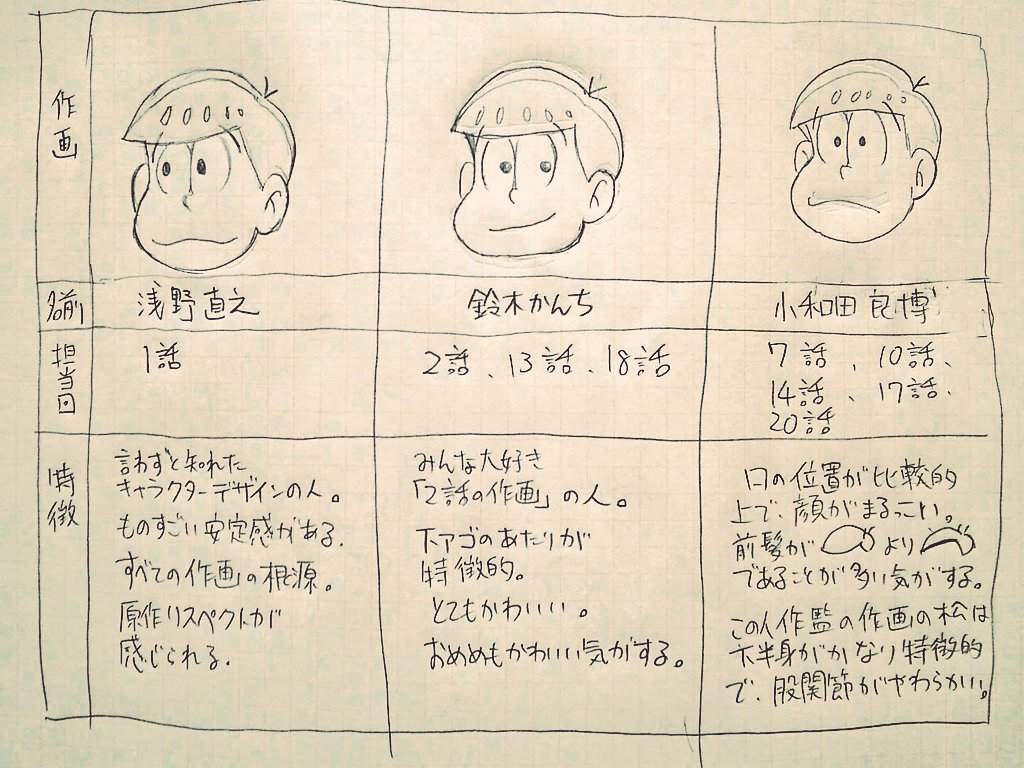 作画
名前
浅野直之
鈴木かんち
小和田良博
担当回
1話
2話、13話、18話
7話、10話、
14話、17話、
20話
特徴
言わずと知れた
キャラクターデザインの人。
ものすごい安定感がある。
すべての作画の根源。
原作リスペクトが
感じられる。
みんな大好き
「2話の作画」の人。
下アゴのあたりが
特徴的。
とてもかわいい。
おめめもかわいい気がする。
口の位置が比較的
上で、顔がまるっこい。
前髪が より
であることが多い気がする。
この人作監の作画の松は
下半身がかなり特徴的
で、股関節がやわらかい。